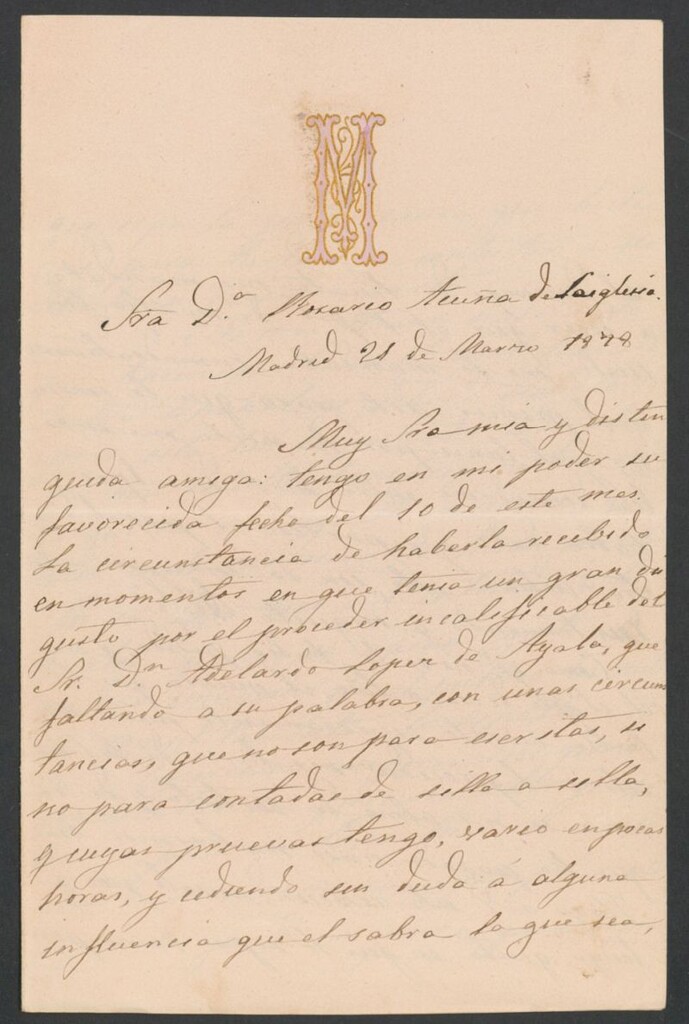 M
Sra D.ª Rosario Acuña de Laiglesia.
Madrid 21 de Marzo 1878
Muy Sra mia y distin
guida amiga: tengo en mi poder su
favorecida fecha del 10 de este mes.
La circunstancia de haberla recibido
en momentos en que tenia un gran dis
gusto por el proceder incalificable del
Sr. Dn Adelardo Lopez de Ayala, que
faltando a su palabra, con unas circuns
tancias, que no son para escritas, si
no para contadas de silla a silla,
y cuyas pruevas tengo, vario en pocas
horas, y cediendo sin duda á alguna
influencia que el sabra la que sea,